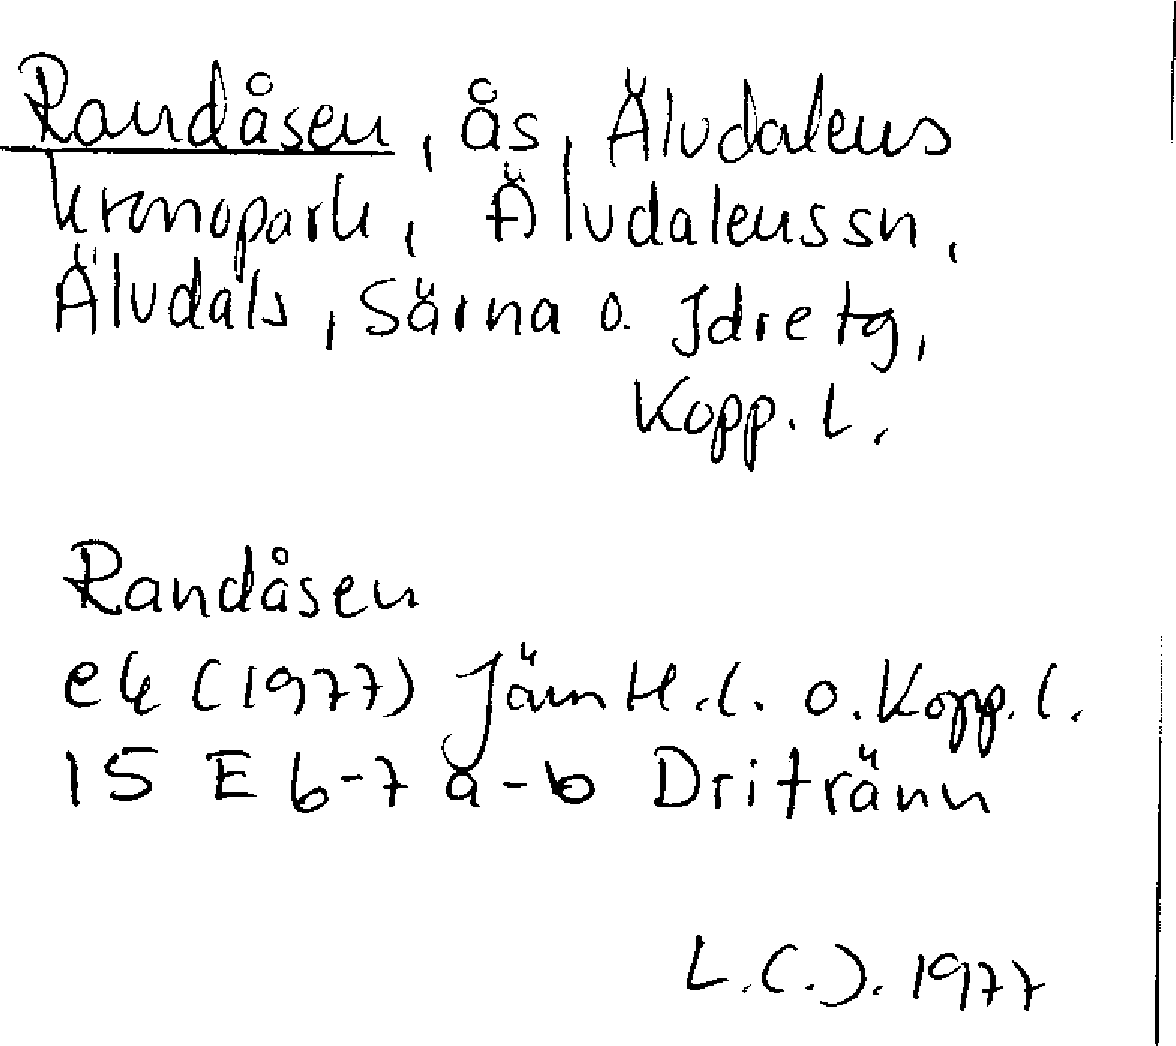 Randåsen, ås, Älvdalens
kronopark, Älvdalens sn,
Älvdals, Särna o. Idre tg,
Kopp. l.
Randåsen
ek (1977) Jämtl.l. o. Kopp.l.
15 E 6-7 a-b Dritränn
L.C.J. 1977